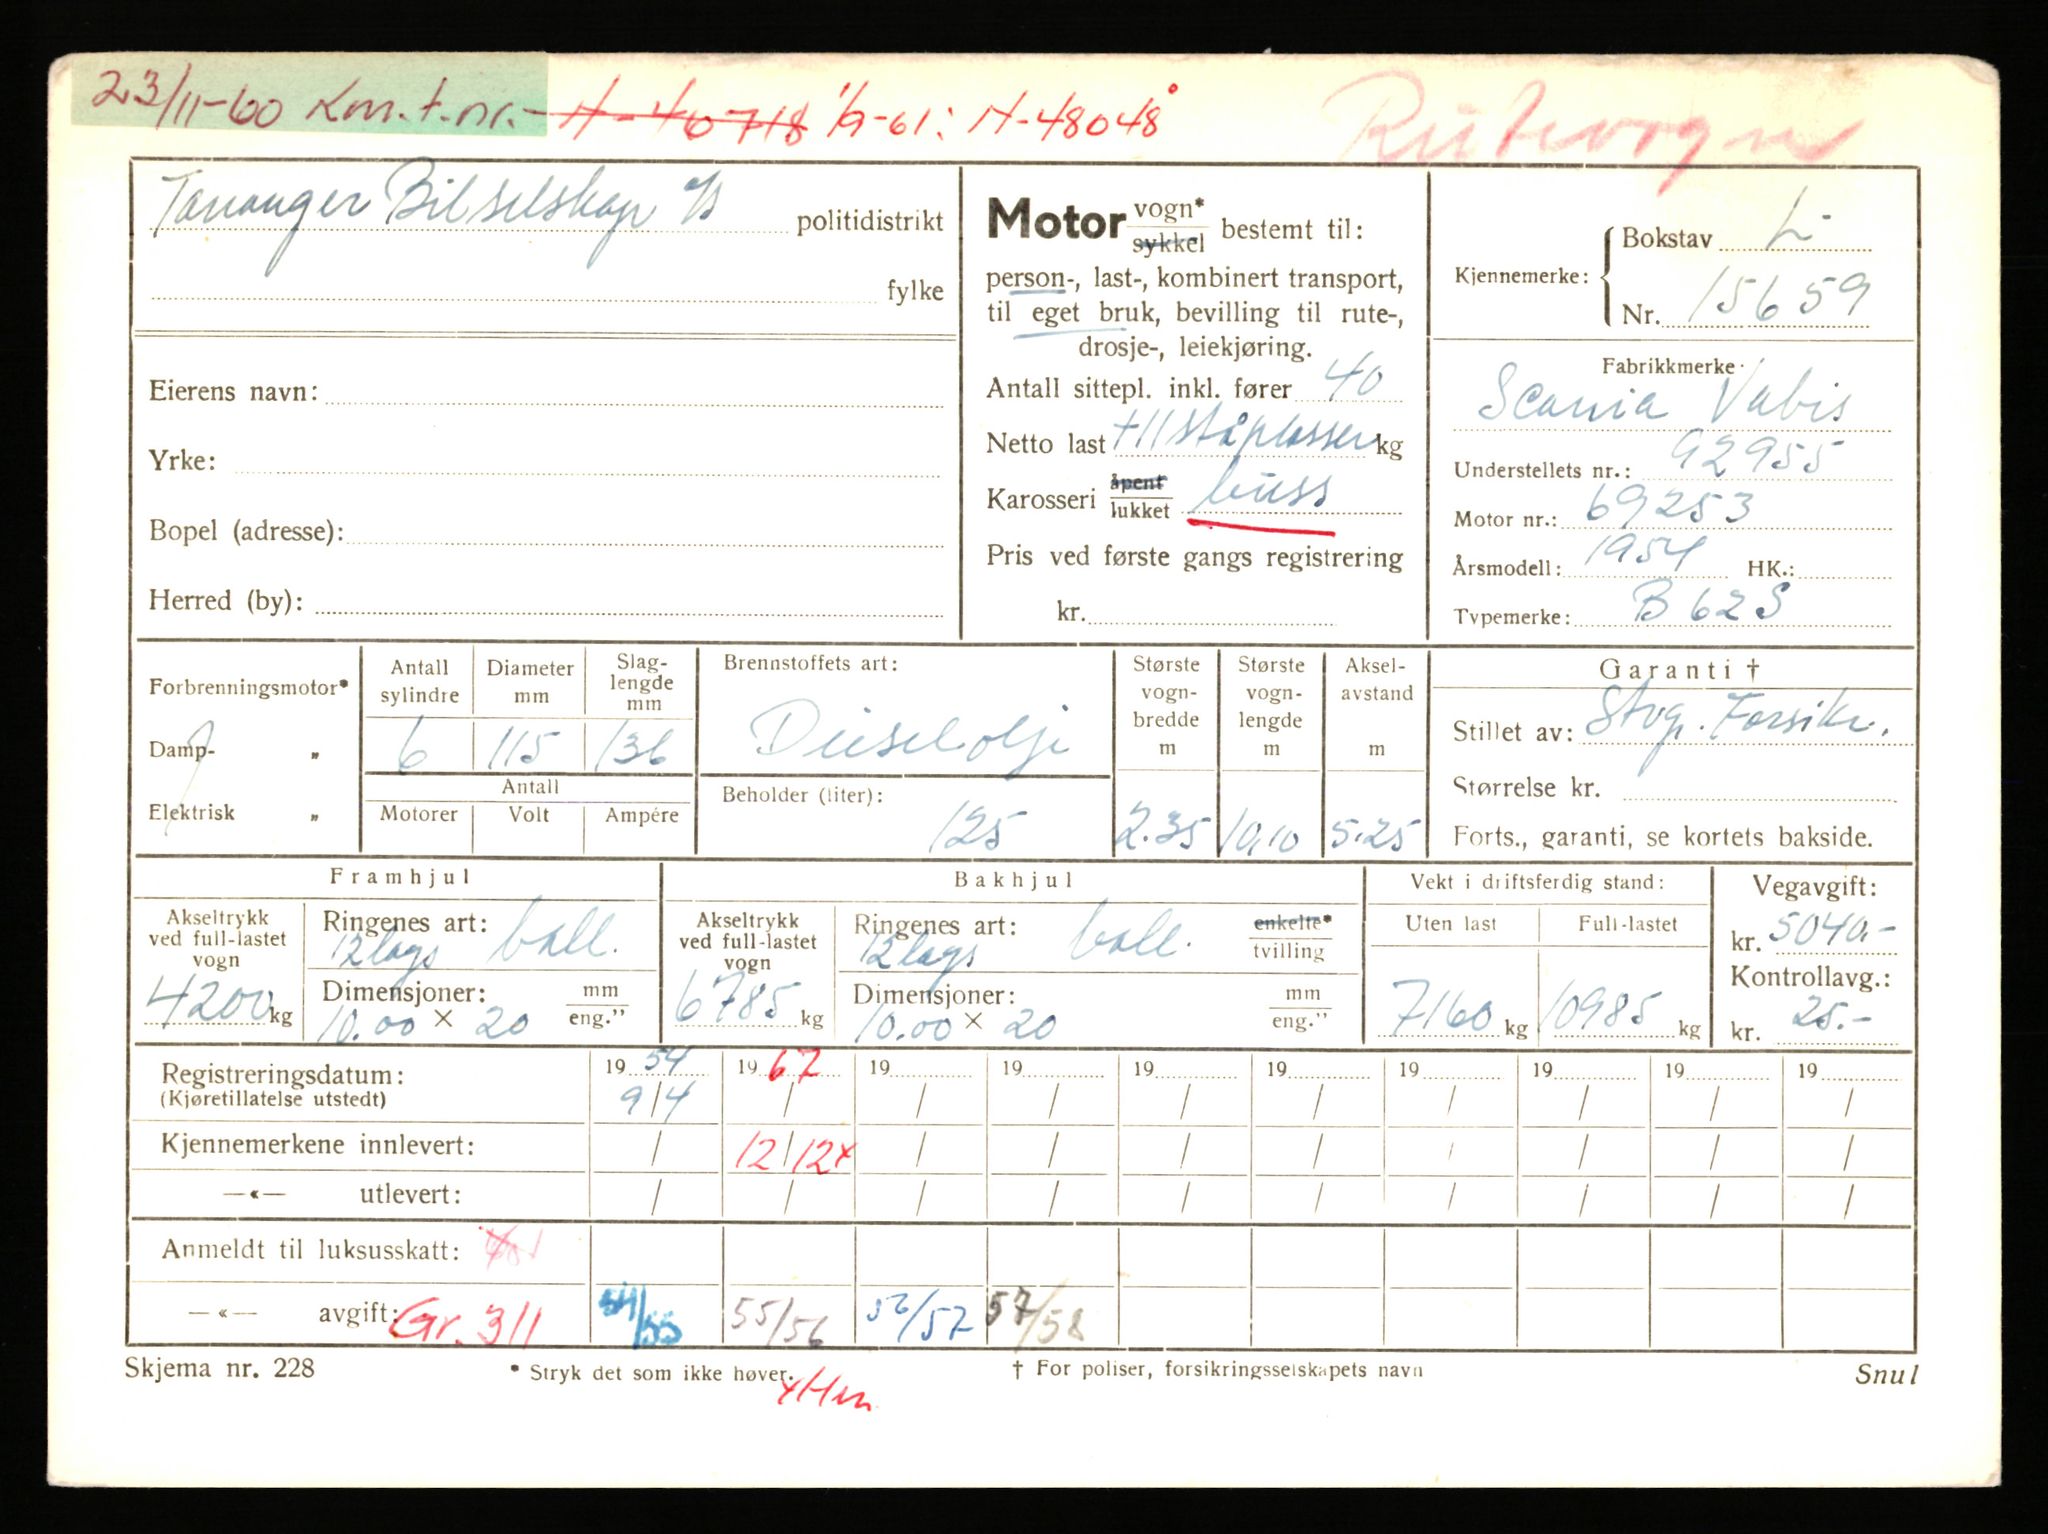 23/11-60 Kon.t.nr.- H-40718 1/9-61: H-48048
Rutevogn
Tananger Bilselskap A/S politidistrikt
fylke
Eierens navn:
Yrke:
Bopel (adresse):
Herred (by):
Motor vogn* / sykkel bestemt til:
person-, last-, kombinert transport,
til eget bruk, bevilling til rute-,
drosje-, leiekjøring.
Antall sittepl. inkl. fører 40
Netto last + 11 ståplasser kg
Karosseri åpent / lukket buss
Pris ved første gangs registrering
kr.
Kjennemerke: Bokstav L-
Nr. 15659
Fabrikkmerke
Scania Vabis
Understellets nr.: 92955
Motor nr.: 69253
Årsmodell: 1954 HK.:
Typemerke: B 62 S
Forbrenningsmotor*
Damp- „
Elektrisk „
Antall sylindre 6
Diameter mm 115
Slag-lengde mm 136
Antall
Motorer Volt Ampére
Brennstoffets art:
Dieselolje
Beholder (liter):
125
Største vogn-bredde m 2.35
Største vogn-lengde m 10,10
Aksel-avstand m 5.25
Garanti †
Stillet av: Stvg. Forsikr.
Størrelse kr.
Forts., garanti, se kortets bakside.
Framhjul
Akseltrykk ved full-lastet vogn 4200 kg
Ringenes art: 12 lags ball.
Dimensjoner: mm / eng."
10.00 × 20
Bakhjul
Akseltrykk ved full-lastet vogn 6785 kg
Ringenes art: 12 lags ball. enkelte* / tvilling
Dimensjoner: mm / eng."
10.00 × 20
Vekt i driftsferdig stand:
Uten last 7160 kg
Full-lastet 10985 kg
Vegavgift:
kr. 5040.-
Kontrollavg.:
kr. 25.-
Registreringsdatum: 19 54 19 67 19 19 19 19 19 19 19 19
(Kjøretillatelse utstedt) 9/4 / / / / / / / / /
Kjennemerkene innlevert: / 12/12 x / / / / / / / /
—«— utlevert: / / / / / / / / / /
Anmeldt til luksusskatt:
—«— avgift: Gr. 311 54/55 55/56 56/57 57/58
Skjema nr. 228 * Stryk det som ikke høver. † For poliser, forsikringsselskapets navn Snul